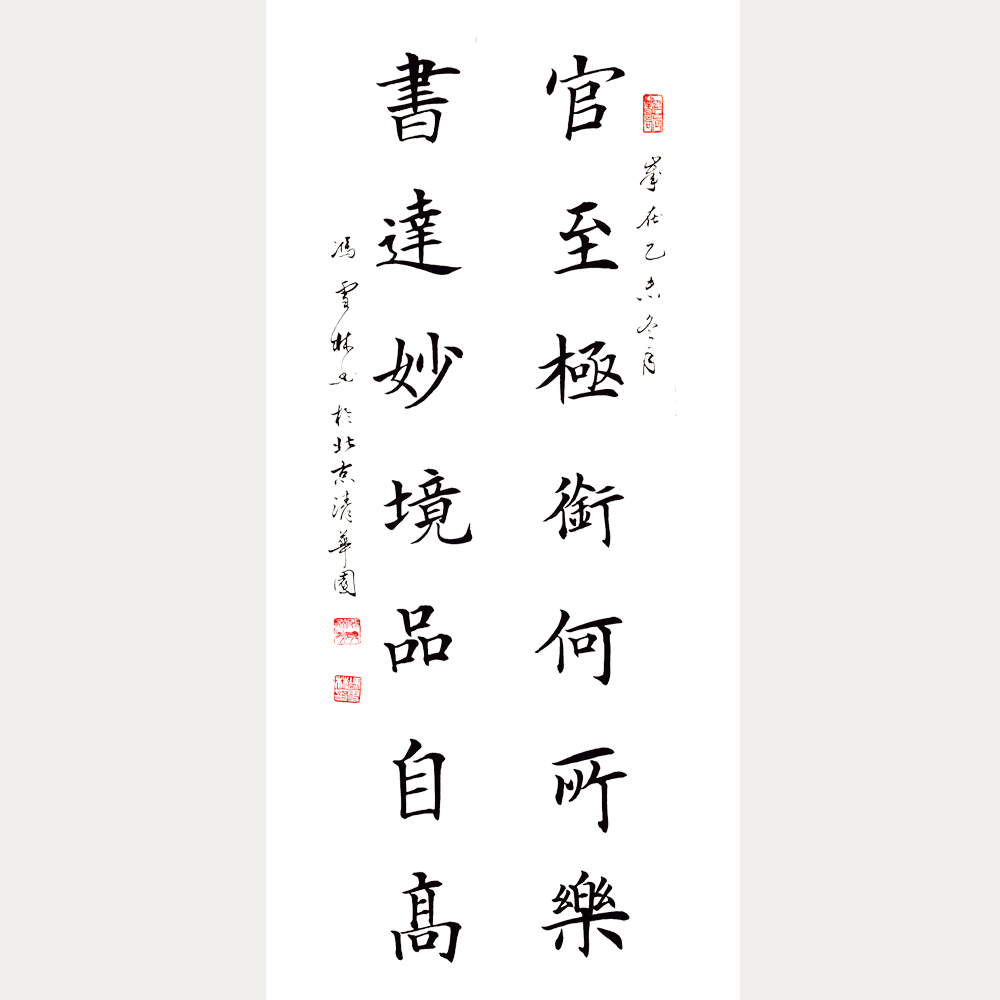 歲在乙未冬月
官至極銜何所樂
書達妙境品自髙
馮雪林书於北京清華園